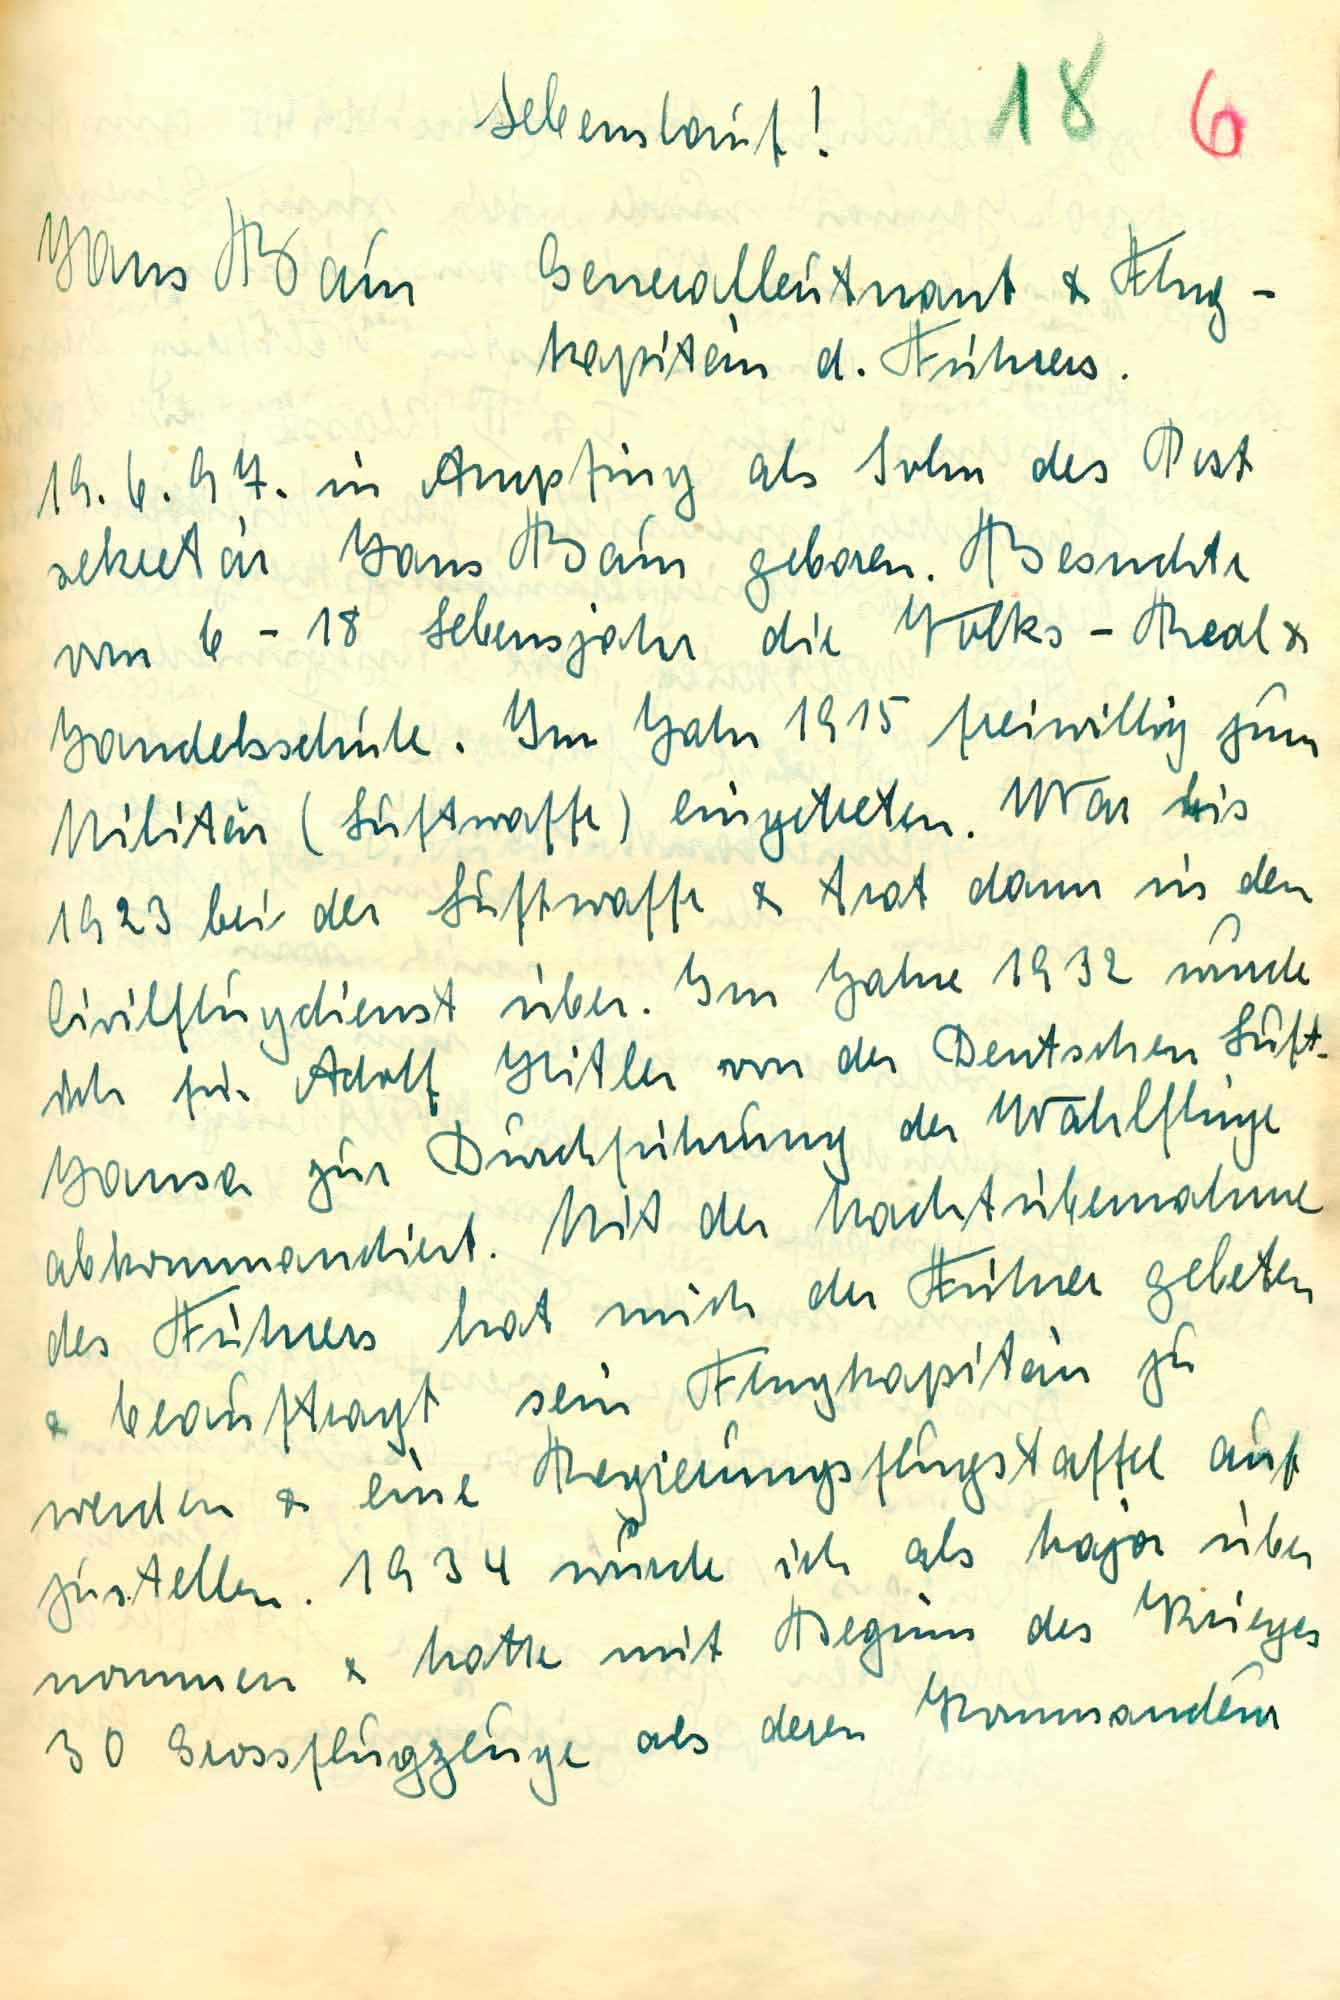 Lebenslauf! 18 6
Hans Baur Generalleutnant & Flug-
kapitän d. Führers.
19.6.97. in Ampfing als Sohn des Post
sekretär Hans Baur geboren. Besuchte
vom 6 - 18 Lebensjahr die Volks - Real &
Handelsschule. Im Jahr 1915 freiwillig zum
Militär (Luftwaffe) eingetreten. War bis
1923 bei der Luftwaffe & trat dann in den
Civilflugdienst über. Im Jahre 1932 wurde
ich für Adolf Hitler von der Deutschen Luft-
Hansa zur Durchführung der Wahlflüge
abkommandiert. Mit der Machtübernahme
des Führers hat mich der Führer gebeten
& beauftragt sein Flugkapitän zu
werden & eine Regierungsflugstaffel auf
zustellen. 1934 wurde ich als Major über
nommen & hatte mit Beginn des Krieges
30 Grossflugzeuge als deren Kommandeur